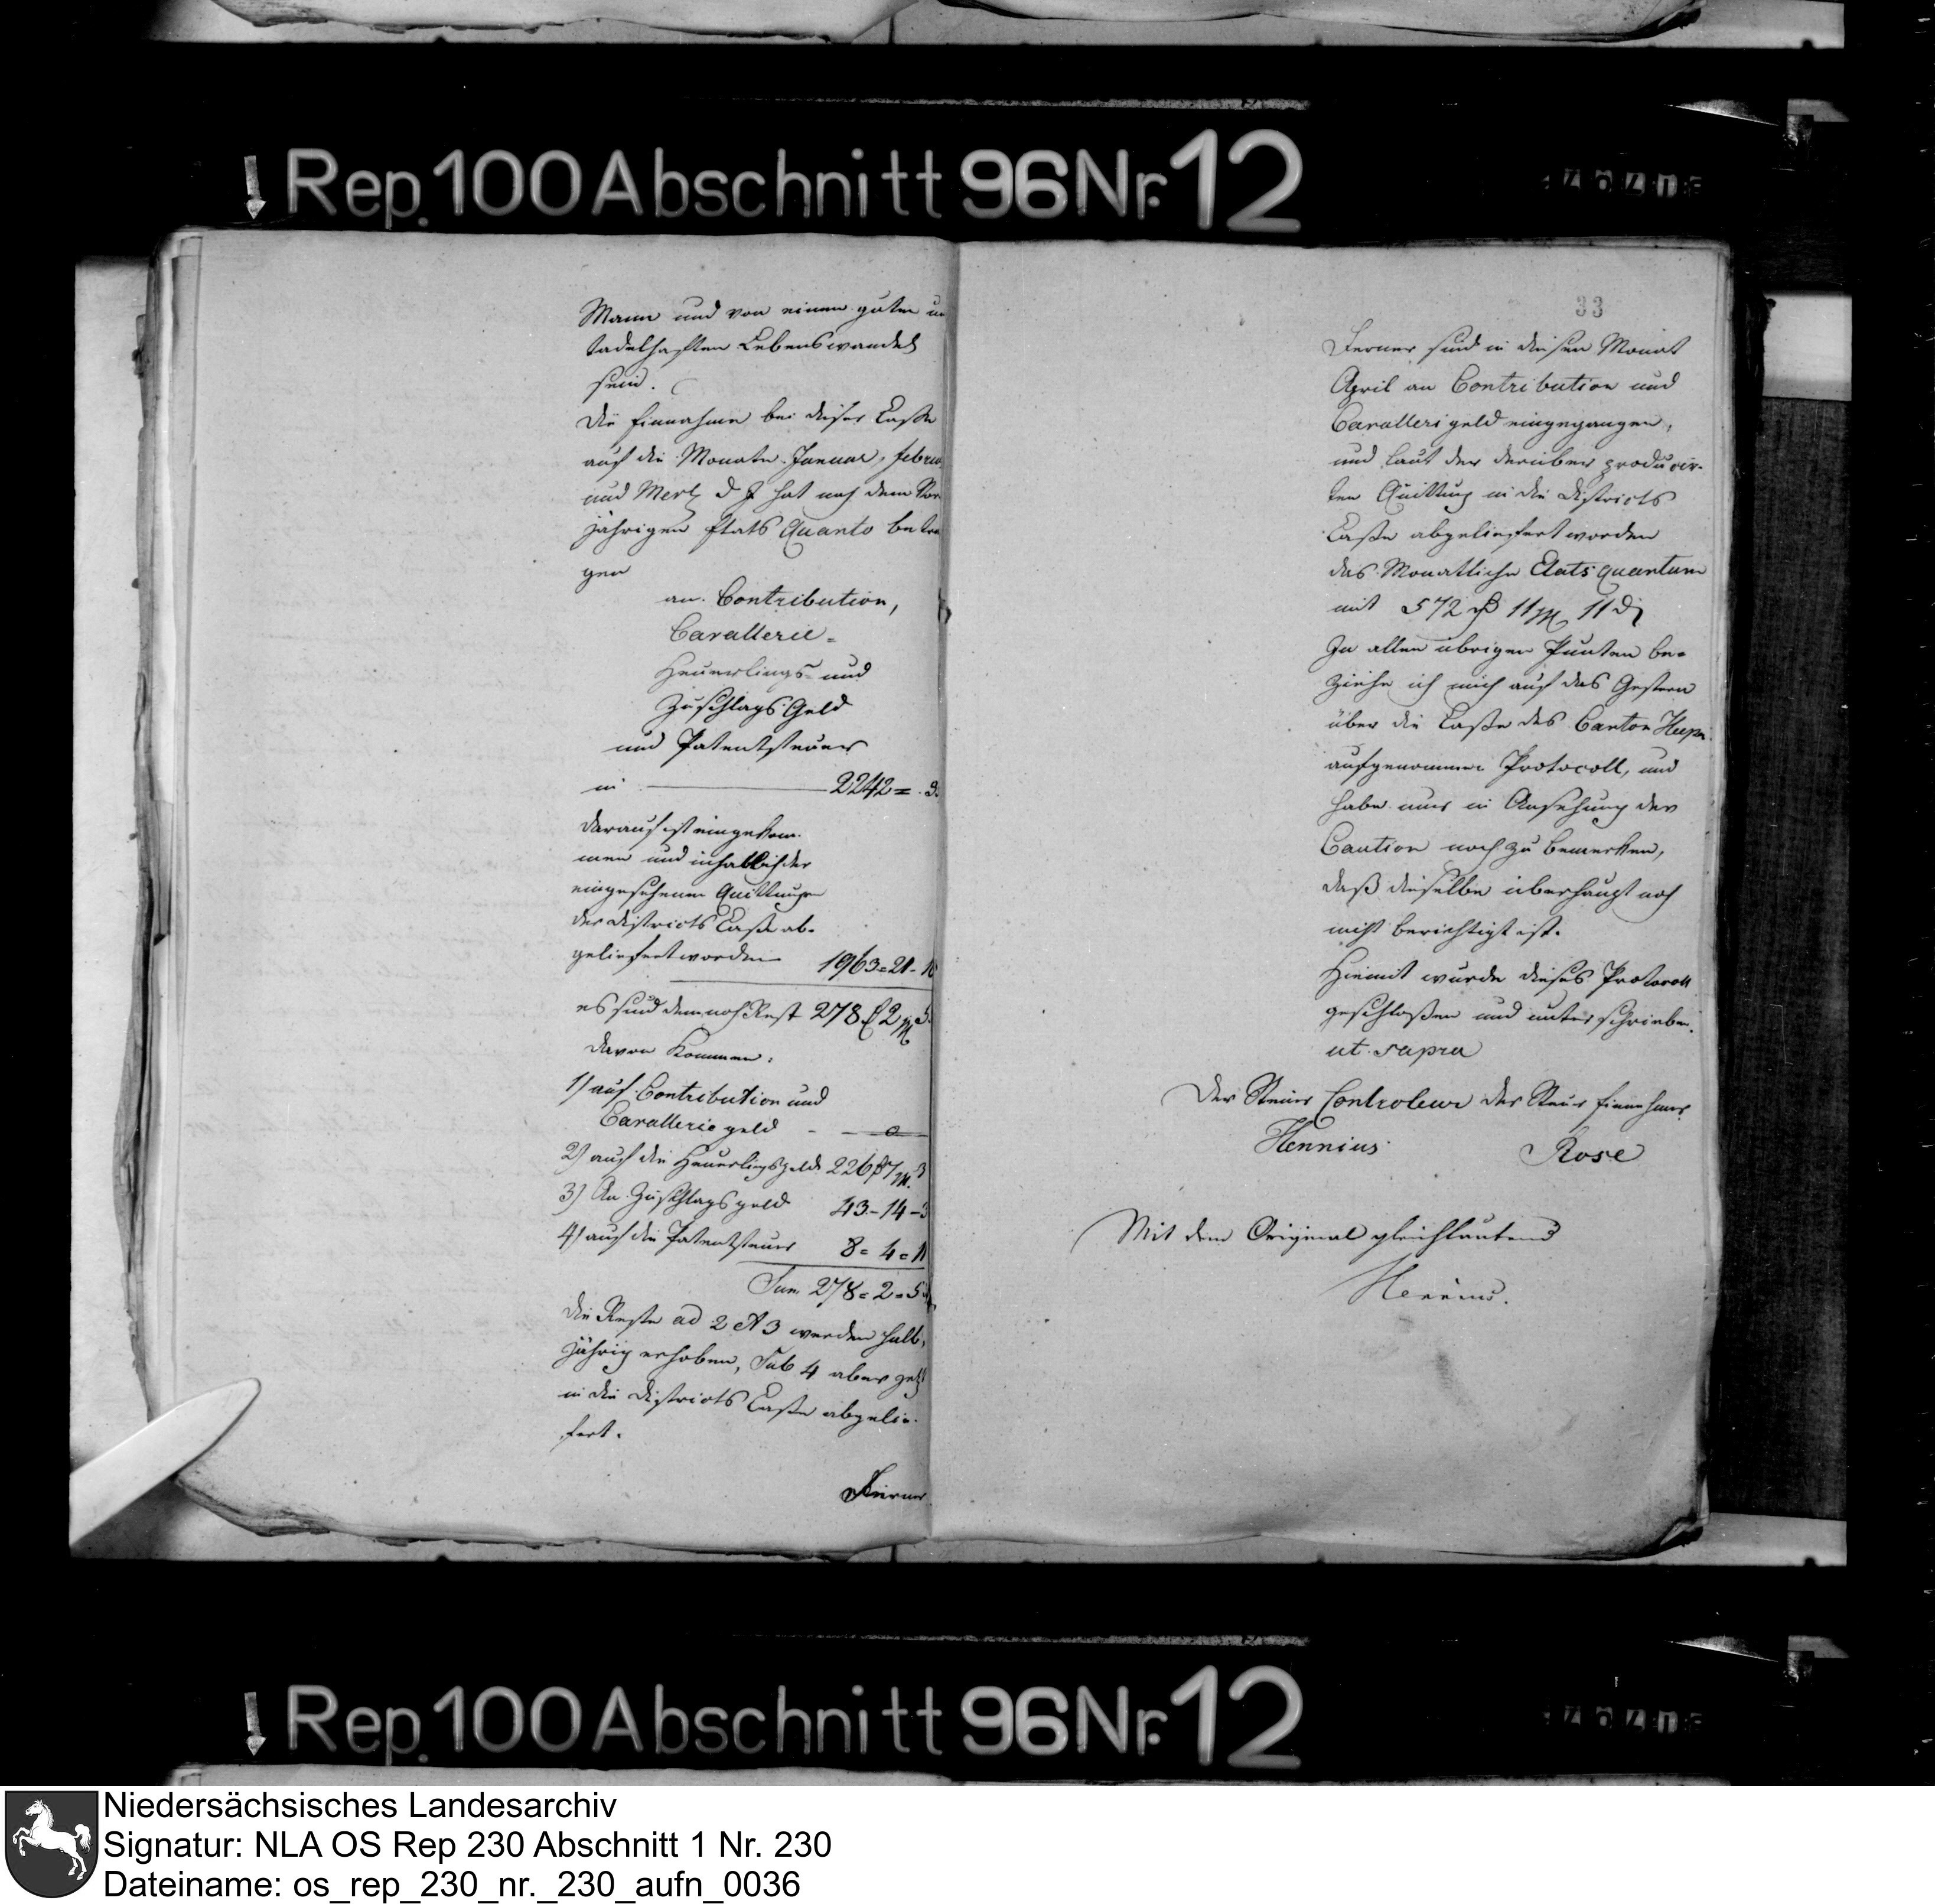 Rep. 100 Abschnitt 96 Nr. 12
Mann und von einen guten un
tadelhaften Lebenswandel
sein.
Die Einnahme bei dieser Casse
auf die Monate Januar, Febru
und Mertz d J hat nach dem Vor
jährigen Etats Quanto betra
gen
an Contribution,
Cavallerie-
Heuerlings- und
Zuschlags Geld
und Patentsteuer
in 2242=
darauf ist eingekom-
men und inhaltlich der
eingesehenen Quittungen
der Districts Casse ab-
geliefert worden 1963=21-
es sind demnach Rest 278 2
davon kommen:
1) auf Contribution und
Cavallerie geld - - 0
2) auf die Heuerlingsgelde 226 7 3
3) An Zuschlags geld 43-14-3
4) auf die Patentsteuer 8=4=11
Sum 278=2=5
die Reste ad 2 et 3 werden halb-
jährig erhoben, Sub 4 aber jetzt
in die Districts Casse abgelie-
fert.
Ferner
33
Ferner sind in diesen Monat
April an Contribution und
Cavalleri geld eingegangen,
und laut der darüber producir-
ten Quittung in die Districts
Casse abgeliefert worden
das Monatliche Etats quantum
mit 572 rß 11 11
In allen übrigen Puncten be-
ziehe ich mich auf das Gestern
über die Casse des Canton
aufgenommene Protocoll, und
habe nur in Ansehung der
Caution noch zu bemerken,
daß dieselbe überhaupt noch
nicht berichtigt ist.
Hiemit wurde dieses Protocoll
geschlossen und unterschrieben.
ut supra
Der Steuer Controleur der Steuer Einnehmer
Hennius Rose
Mit dem Original gleichlautend
Hennius.
Rep. 100 Abschnitt 96 Nr. 12
Niedersächsisches Landesarchiv
Signatur: NLA OS Rep 230 Abschnitt 1 Nr. 230
Dateiname: os_rep_230_nr._230_aufn_0036